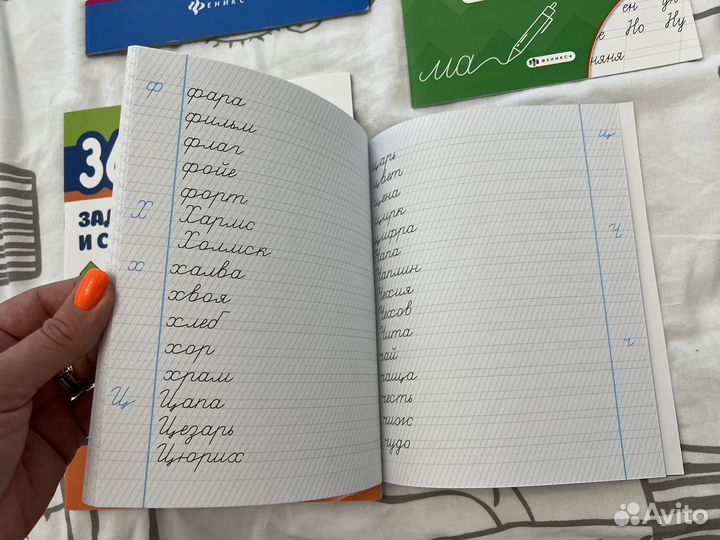 ФЕНИКС
ма
ФЕНИКС+
ен ун
е Но Ну
няня
36
ЗАД
И С
ф фара
фильм
флаг
фойе
форт
Х Хармс
Холмск
х халва
хвоя
хлеб
хор
храм
Ц Цапа
Цезарь
Цюрих
царь ц
цвет
цена
цирк
цифра Ч
Чапа
Чаплин
Чехия
Чехов
Чита ч
чай
чаща
честь
чиж
чудо
Avito